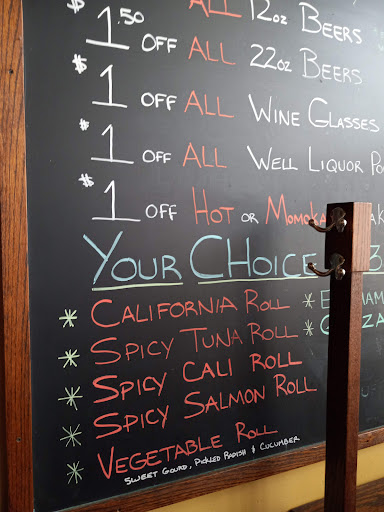 $ ALL 12oz BEERS
$1.50 OFF ALL 22oz BEERS
$1 OFF ALL WINE GLASSES
$1 OFF ALL WELL LIQUOR
$1 OFF HOT OR
YOUR CHOICE
* CALIFORNIA ROLL *
* SPICY TUNA ROLL *
* SPICY CALI ROLL
* SPICY SALMON ROLL
* VEGETABLE ROLL
SWEET GOURD, PICKLED RADISH & CUCUMBER